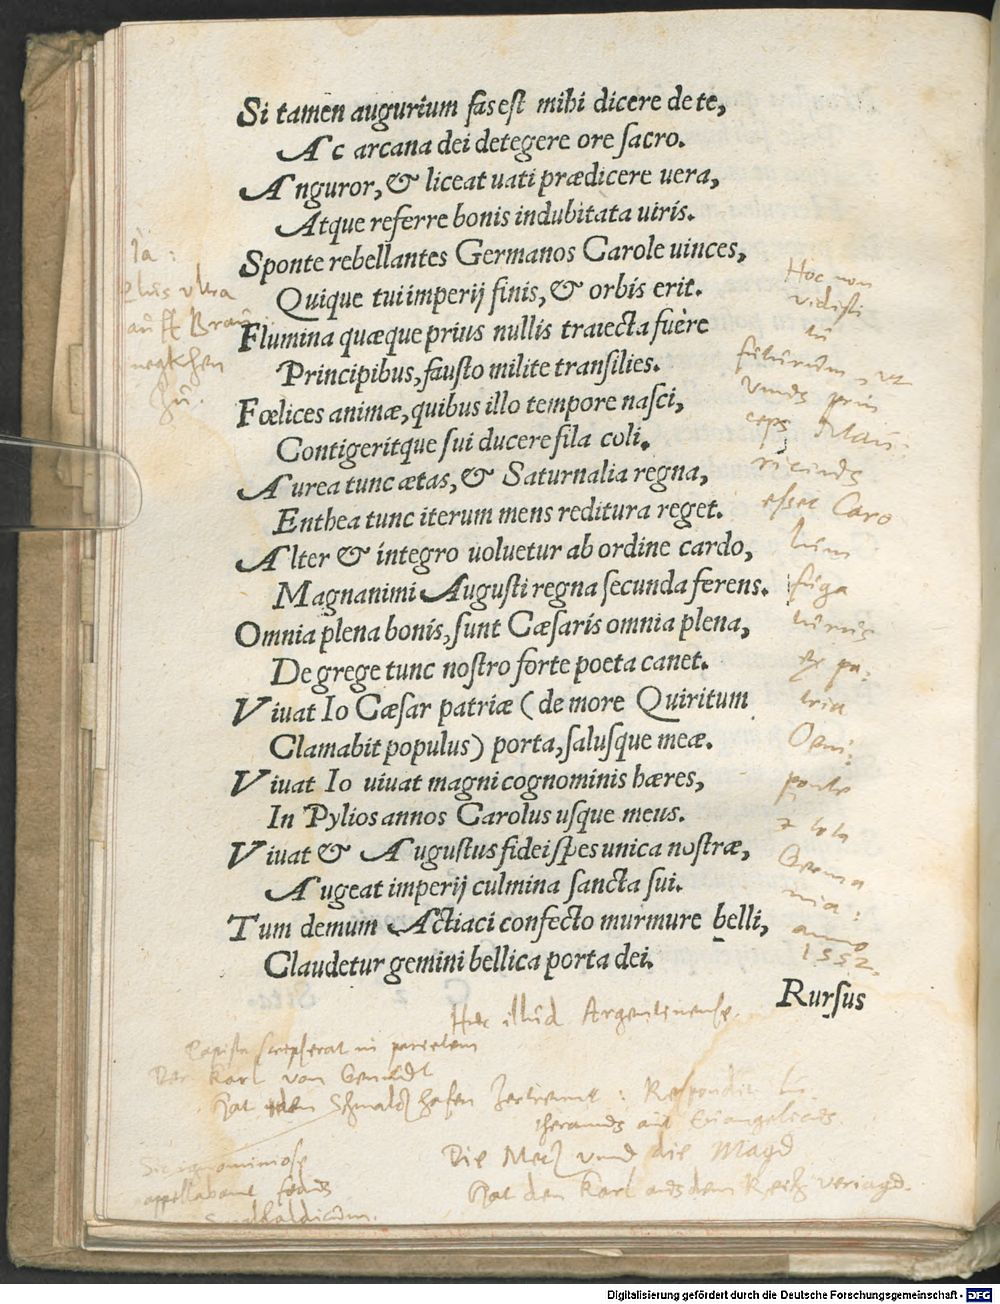 Si tamen augurium fas est mihi dicere de te,
Ac arcana dei detegere ore sacro.
Anguror, & liceat uati prædicere uera,
Atque referre bonis indubitata uiris.
Sponte rebellantes Germanos Carole uinces,
Quique tui imperij finis, & orbis erit.
Flumina quæque prius nullis traiecta fuêre
Principibus, fausto milite transilies.
Fœlices animæ, quibus illo tempore nasci,
Contigeritque sui ducere fila coli.
Aurea tunc ætas, & Saturnalia regna,
Enthea tunc iterum mens reditura reget.
Alter & integro uoluetur ab ordine cardo,
Magnanimi Augusti regna secunda ferens.
Omnia plena bonis, sunt Cæsaris omnia plena,
De grege tunc nostro forte poeta canet.
Viuat Io Cæsar patriæ (de more Quiritum
Clamabit populus) porta, salusque meæ.
Viuat Io uiuat magni cognominis hæres,
In Pylios annos Carolus usque meus.
Viuat & Augustus fidei spes unica nostræ,
Augeat imperij culmina sancta sui.
Tum demum Actiaci confecto murmure belli,
Claudetur gemini bellica porta dei.
Rursus
Ia:
plus vltra
auff Brau
negkhen
zu.
Hoc non
vidisti
tu
futurum, ut
vnus prin
ceps Mau:
ricius
esset Caro
lum
fuga
turus
ex pa:
tria
Oeni:
ponte
& tota
Germa
nia:
anno
1552.
Hoc illud Argentinense.
Papista scripserat in parietem
Der Karl von Genndt
Hat den Schmalz hafen zertrennt: Respondit Lu
theranus aut Euangelicus.
Die Metz vnnd die Magd
Hat den Karl aus dem Reich veriagd.
Sic ignominiose
appellabant foedus
Smalkaldicum.
Digitalisierung gefördert durch die Deutsche Forschungsgemeinschaft - DFG